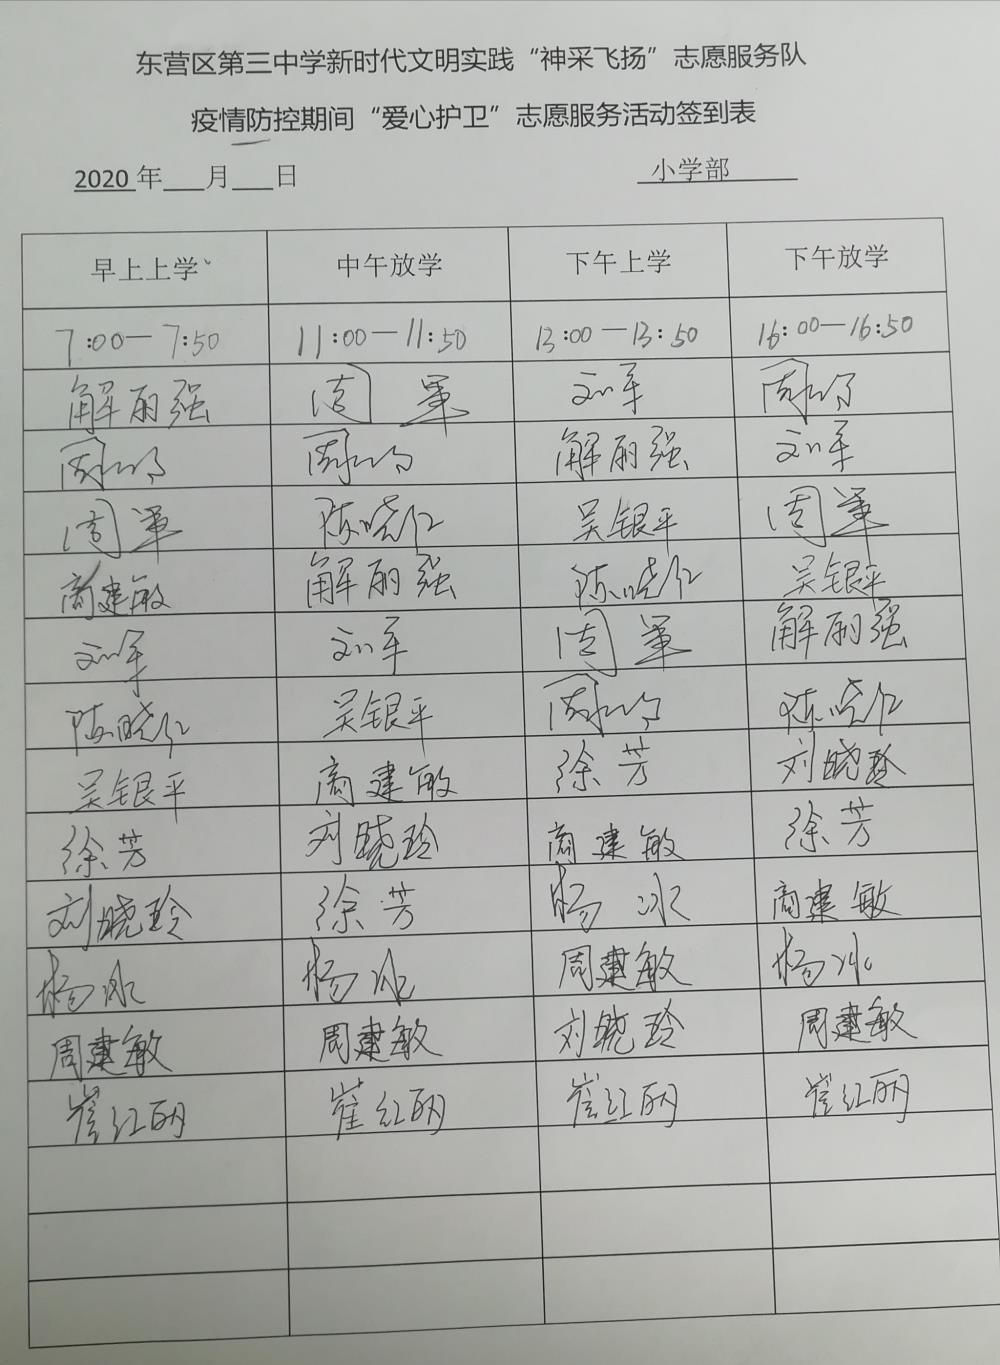 东营区第三中学新时代文明实践“神采飞扬”志愿服务队
疫情防控期间“爱心护卫”志愿服务活动签到表
2020年___月___日 小学部
早上上学 中午放学 下午上学 下午放学
7:00—7:50 11:00—11:50 13:00—13:50 16:00—16:50
解丽强 周军 刘军 周
周 周 解丽强 刘军
周军 陈晓红 吴银平 周军
商建敏 解丽强 陈晓红 吴银平
刘军 刘军 周军 解丽强
陈晓红 吴银平 周 陈晓红
吴银平 商建敏 徐芳 刘晓玲
徐芳 刘晓玲 商建敏 徐芳
刘晓玲 徐芳 杨冰 商建敏
杨冰 杨冰 周建敏 杨冰
周建敏 周建敏 刘晓玲 周建敏
崔红丽 崔红丽 崔红丽 崔红丽